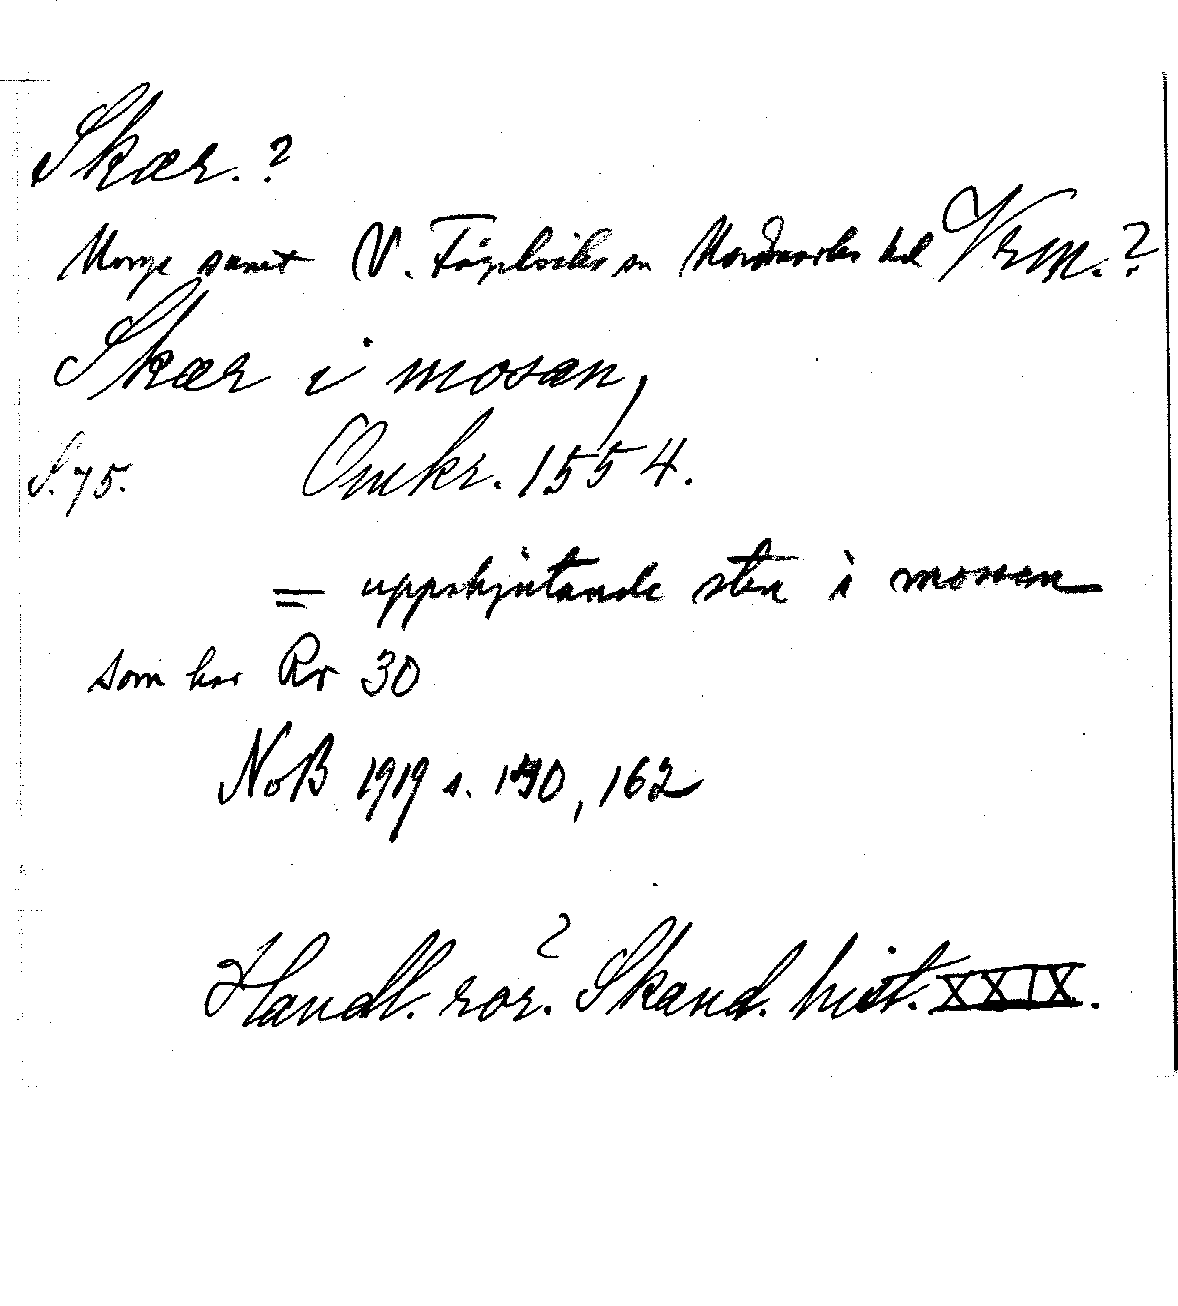 Skær. ?
Norge samt V. Fågelviks sn Nordmarks hd Vrm. ?
Skær i mosæn,
S. 75. Omkr. 1554.
= uppskjutande sten i mossen
som har Rr 30
NoB 1919 s. 150, 162
Handl. rör. Skand. hist. XXIX.